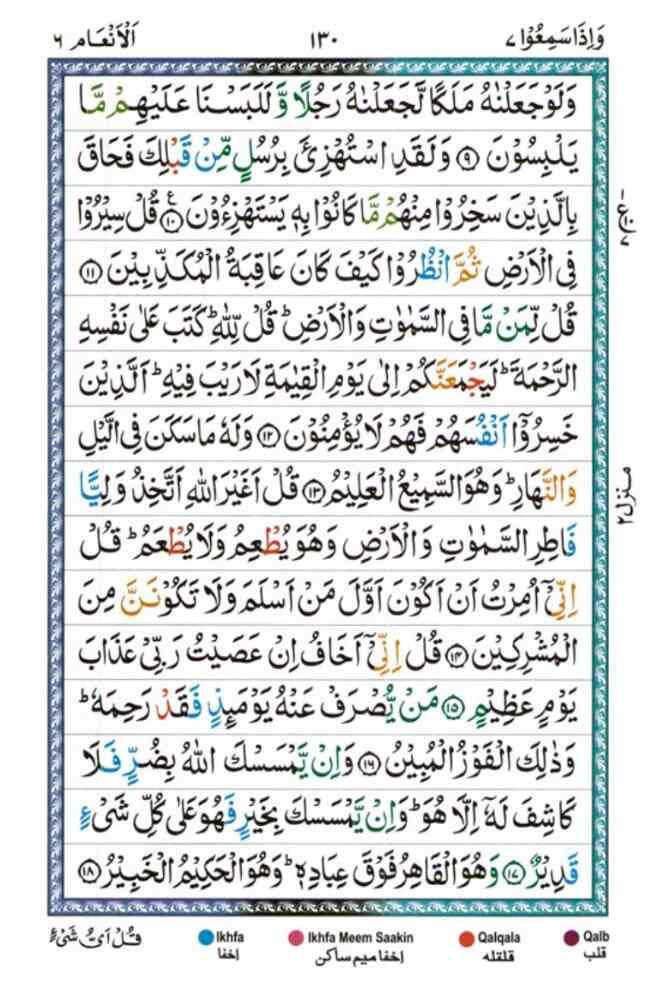 وَاِذَا سَمِعُوْا ۷
۱۳۰
اَلْاَنْعَام ۶
وَلَوْ جَعَلْنٰهُ مَلَكًا لَّجَعَلْنٰهُ رَجُلًا وَّ لَلَبَسْنَا عَلَيْهِمْ مَّا
يَلْبِسُوْنَ ۹ وَلَقَدِ اسْتُهْزِئَ بِرُسُلٍ مِّنْ قَبْلِكَ فَحَاقَ
بِالَّذِيْنَ سَخِرُوْا مِنْهُمْ مَّا كَانُوْا بِهٖ يَسْتَهْزِءُوْنَ ۱۰ قُلْ سِيْرُوْا
فِى الْاَرْضِ ثُمَّ انْظُرُوْا كَيْفَ كَانَ عَاقِبَةُ الْمُكَذِّبِيْنَ ۱۱
قُلْ لِّمَنْ مَّا فِى السَّمٰوٰتِ وَالْاَرْضِ ؕ قُلْ لِّلّٰهِ ؕ كَتَبَ عَلٰى نَفْسِهِ
الرَّحْمَةَ ؕ لَيَجْمَعَنَّكُمْ اِلٰى يَوْمِ الْقِيٰمَةِ لَا رَيْبَ فِيْهِ ؕ اَلَّذِيْنَ
خَسِرُوْۤا اَنْفُسَهُمْ فَهُمْ لَا يُؤْمِنُوْنَ ۱۲ وَلَهٗ مَا سَكَنَ فِى الَّيْلِ
وَالنَّهَارِ ؕ وَهُوَ السَّمِيْعُ الْعَلِيْمُ ۱۳ قُلْ اَغَيْرَ اللّٰهِ اَتَّخِذُ وَلِيًّا
فَاطِرِ السَّمٰوٰتِ وَالْاَرْضِ وَهُوَ يُطْعِمُ وَلَا يُطْعَمُ ؕ قُلْ
اِنِّىْۤ اُمِرْتُ اَنْ اَكُوْنَ اَوَّلَ مَنْ اَسْلَمَ وَلَا تَكُوْنَنَّ مِنَ
الْمُشْرِكِيْنَ ۱۴ قُلْ اِنِّىْۤ اَخَافُ اِنْ عَصَيْتُ رَبِّىْ عَذَابَ
يَوْمٍ عَظِيْمٍ ۱۵ مَنْ يُّصْرَفْ عَنْهُ يَوْمَئِذٍ فَقَدْ رَحِمَهٗ ؕ
وَذٰلِكَ الْفَوْزُ الْمُبِيْنُ ۱۶ وَاِنْ يَّمْسَسْكَ اللّٰهُ بِضُرٍّ فَلَا
كَاشِفَ لَهٗۤ اِلَّا هُوَ ؕ وَاِنْ يَّمْسَسْكَ بِخَيْرٍ فَهُوَ عَلٰى كُلِّ شَىْءٍ
قَدِيْرٌ ۱۷ وَهُوَ الْقَاهِرُ فَوْقَ عِبَادِهٖ ؕ وَهُوَ الْحَكِيْمُ الْخَبِيْرُ ۱۸
منزل ۲
قُلْ اَىُّ شَىْءٍ
Ikhfa
Ikhfa Meem Saakin
Qalqala
Qalb
اخفا
اخفا میم ساكن
قلقله
قلب